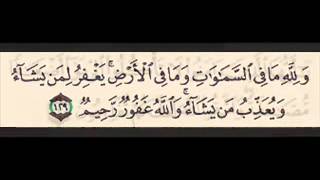 وَلِلَّهِ مَا فِي ٱلسَّمَٰوَٰتِ وَمَا فِي ٱلۡأَرۡضِۚ يَغۡفِرُ لِمَن يَشَآءُ
وَيُعَذِّبُ مَن يَشَآءُۚ وَٱللَّهُ غَفُورٞ رَّحِيمٞ ١٢٩